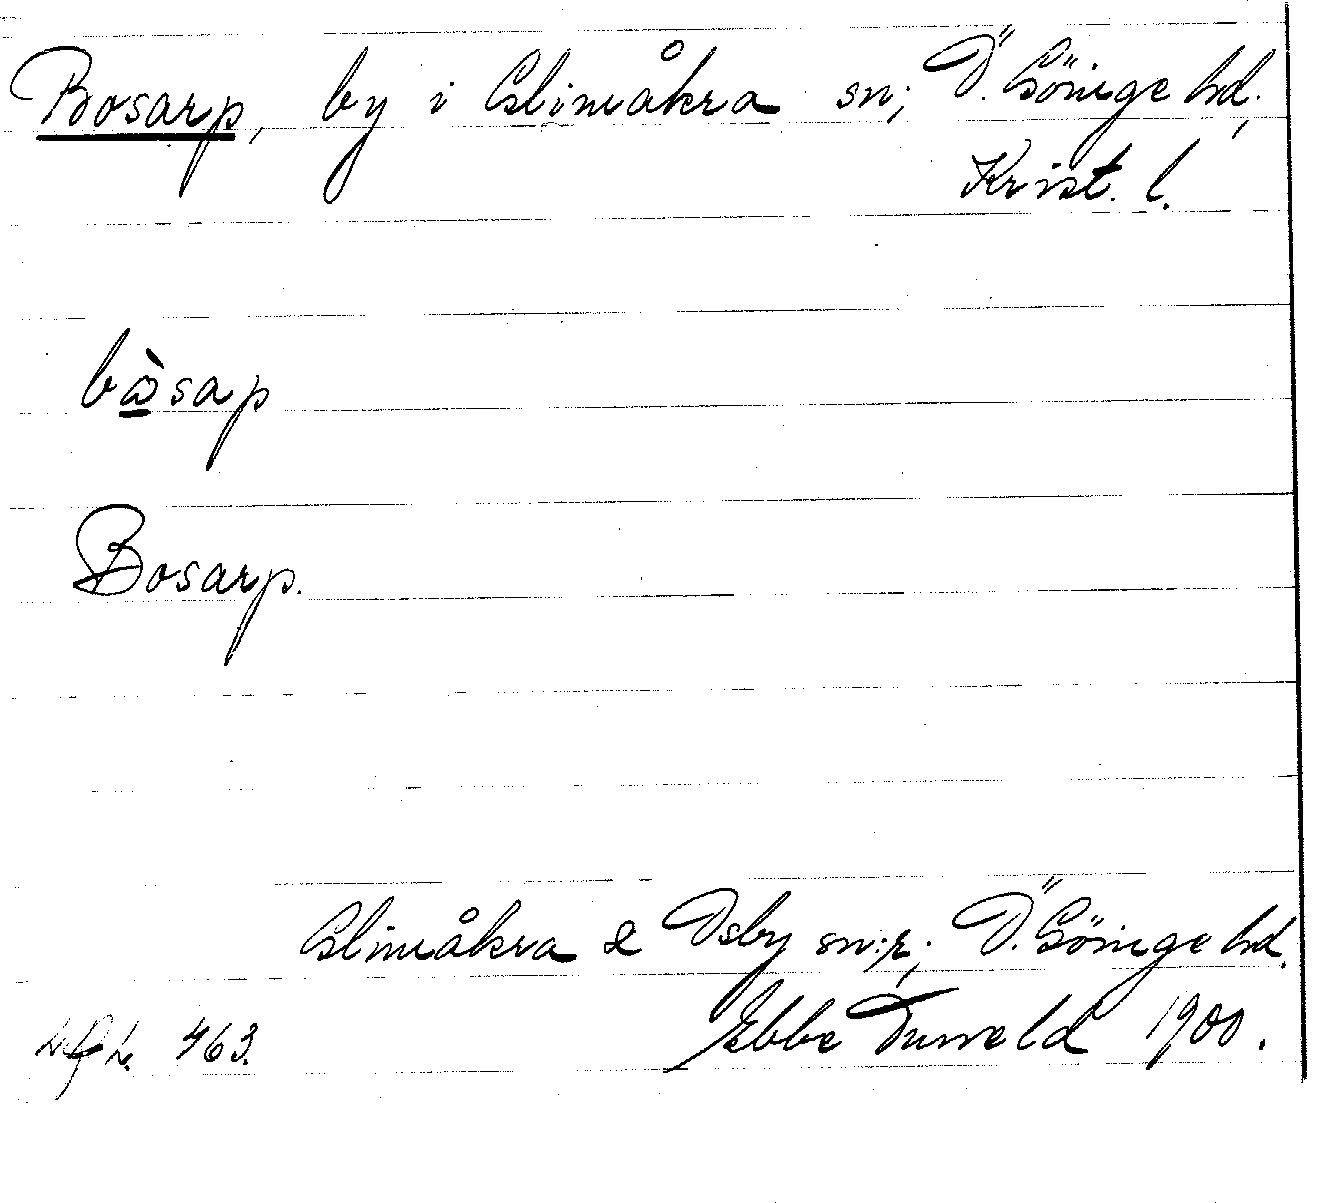 Bosarp, by i Glimåkra sn; Ö. Göinge hd.,
Krist. l.
bòsap
Bosarp.
Glimåkra & Osby sn:r; Ö. Göinge hd.
Ebbe Tuneld 1900.
463.